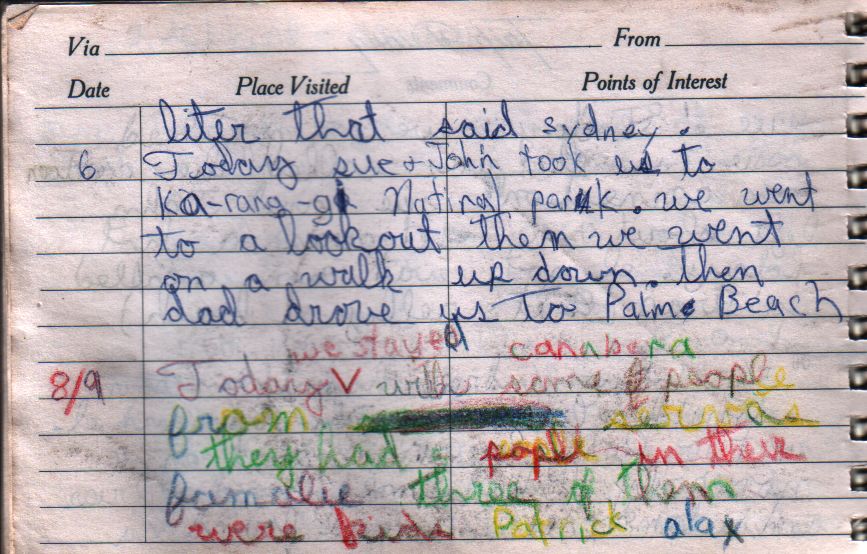 Via From
Date Place Visited Points of Interest
liter that said sydney.
6 Today sue + John took us to
Ka-rang-gi Natinal park. we went
to a lookout then we went
on a walk up down. then
dad drove us To Palm Beach
we stayed canabera
8/9 Today V with some of people
from servas
they had people in their
familie three of them
were kids Patrick alax